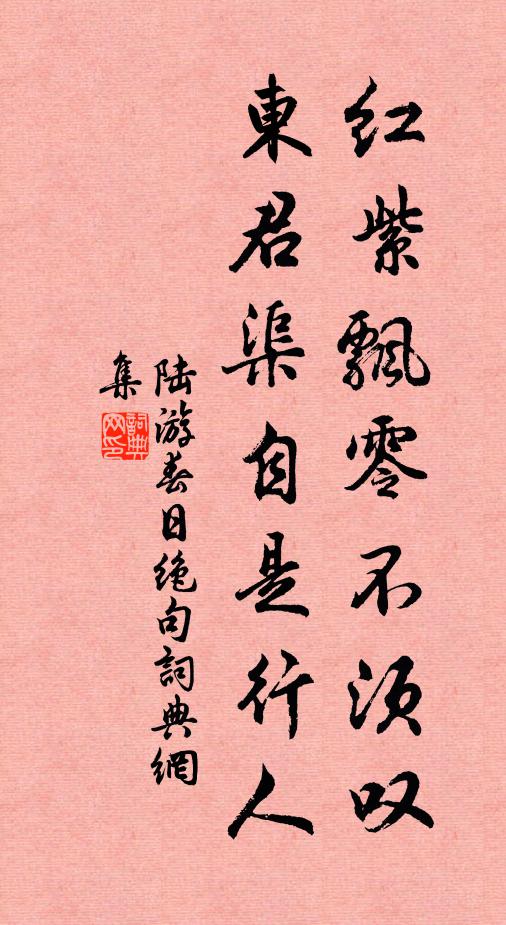 红紫飘零不须叹
東君渠自是行人
陆游春日绝句詞典網
集
詞典
网印